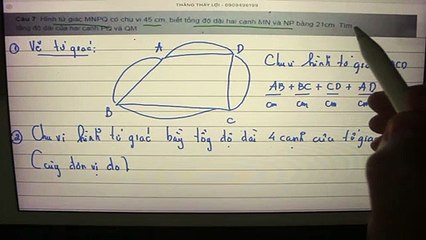 THẮNG THẦY LỢI - 0909496199
Câu 7: Hình tứ giác MNPQ có chu vi 45 cm, biết tổng độ dài hai cạnh MN và NP bằng 21cm. Tìm
tổng độ dài của hai cạnh PQ và QM
① Vẽ tứ giác:
A
D
B
C
Chu vi hình tứ giác CD
AB + BC + CD + AD
cm cm cm cm
② Chu vi hình tứ giác bằng tổng độ dài 4 cạnh của tứ giác
(cùng đơn vị đo)